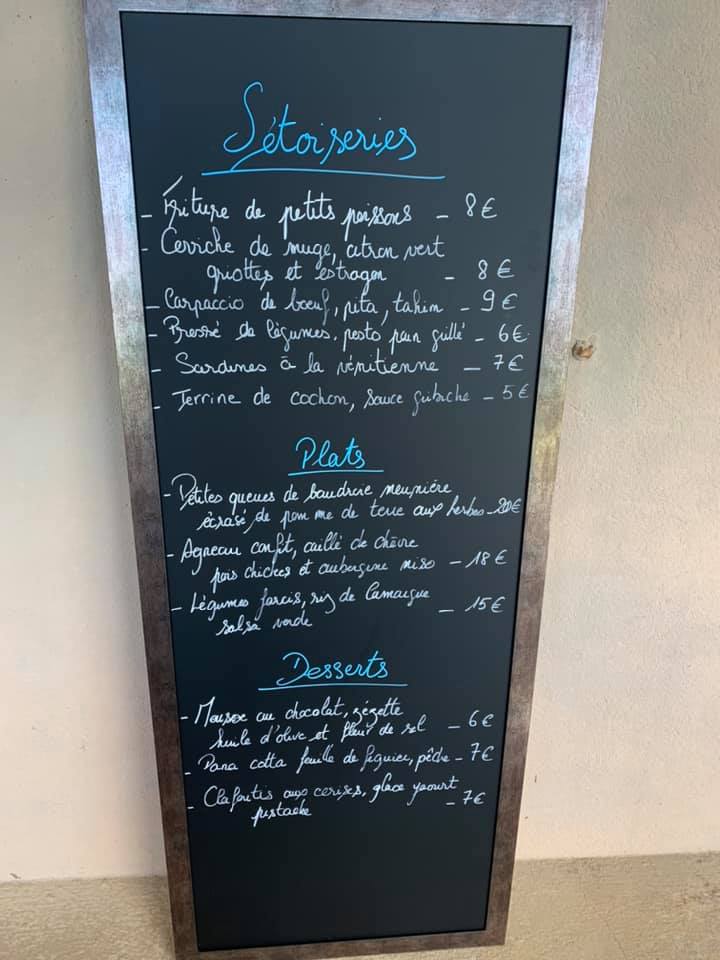 Sétoiseries
- Friture de petits poissons - 8€
- Ceviche de muge, citron vert
griottes et estragon - 8€
- Carpaccio de boeuf, pita, tahin - 9€
- Pressé de légumes, pesto pain grillé - 6€
- Sardines à la vénitienne - 7€
- Terrine de cochon, sauce gribiche - 5€
Plats
- Petites queues de baudroie meunière
écrasé de pomme de terre aux herbes - 20€
- Agneau confit, caillé de chèvre
pois chiches et aubergine miso - 18€
- Légumes farcis, riz de Camargue
salsa verde - 15€
Desserts
- Mousse au chocolat, zézette
huile d'olive et fleur de sel - 6€
- Pana cotta feuille de figuier, pêche - 7€
- Clafoutis aux cerises, glace yaourt
pistache - 7€